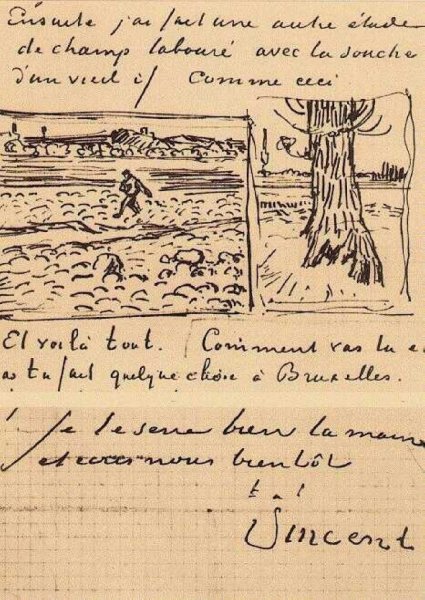 Ensuite j'ai fait une autre étude
de champ labouré avec la souche
d'un vieil if Comme ceci
Et voilà tout. Comment vas tu e
as tu fait quelque chose à Bruxelles.
Je te serre bien la main
et nous bientôt
t. à t
Vincent